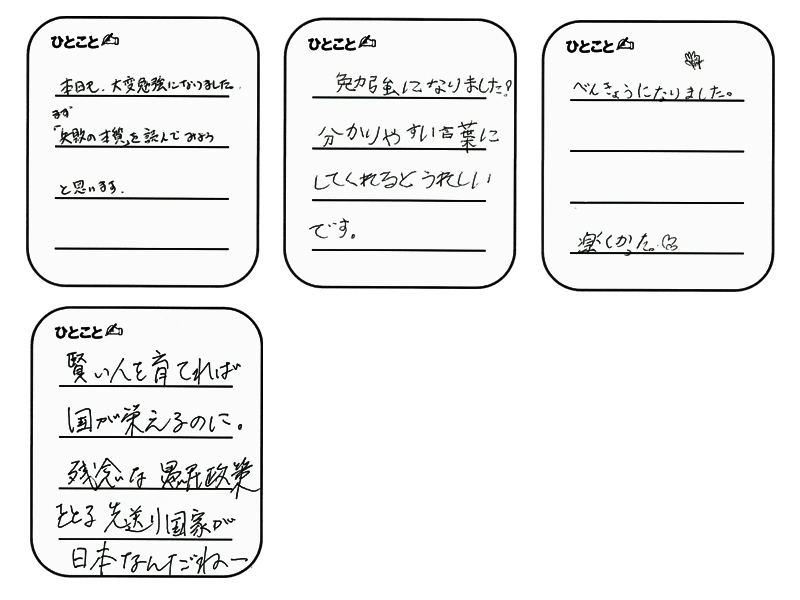 ひとこと
本日も、大変勉強になりました。
まず
「失敗の本質」を読んでみよう
と思います。
ひとこと
勉強になりました!
分かりやすい言葉に
してくれるとうれしい
です。
ひとこと
べんきょうになりました。
楽しかった。
ひとこと
賢い人を育てれば
国が栄えるのに。
残念な愚民政策
をとる先送り国家が
日本なんだねー